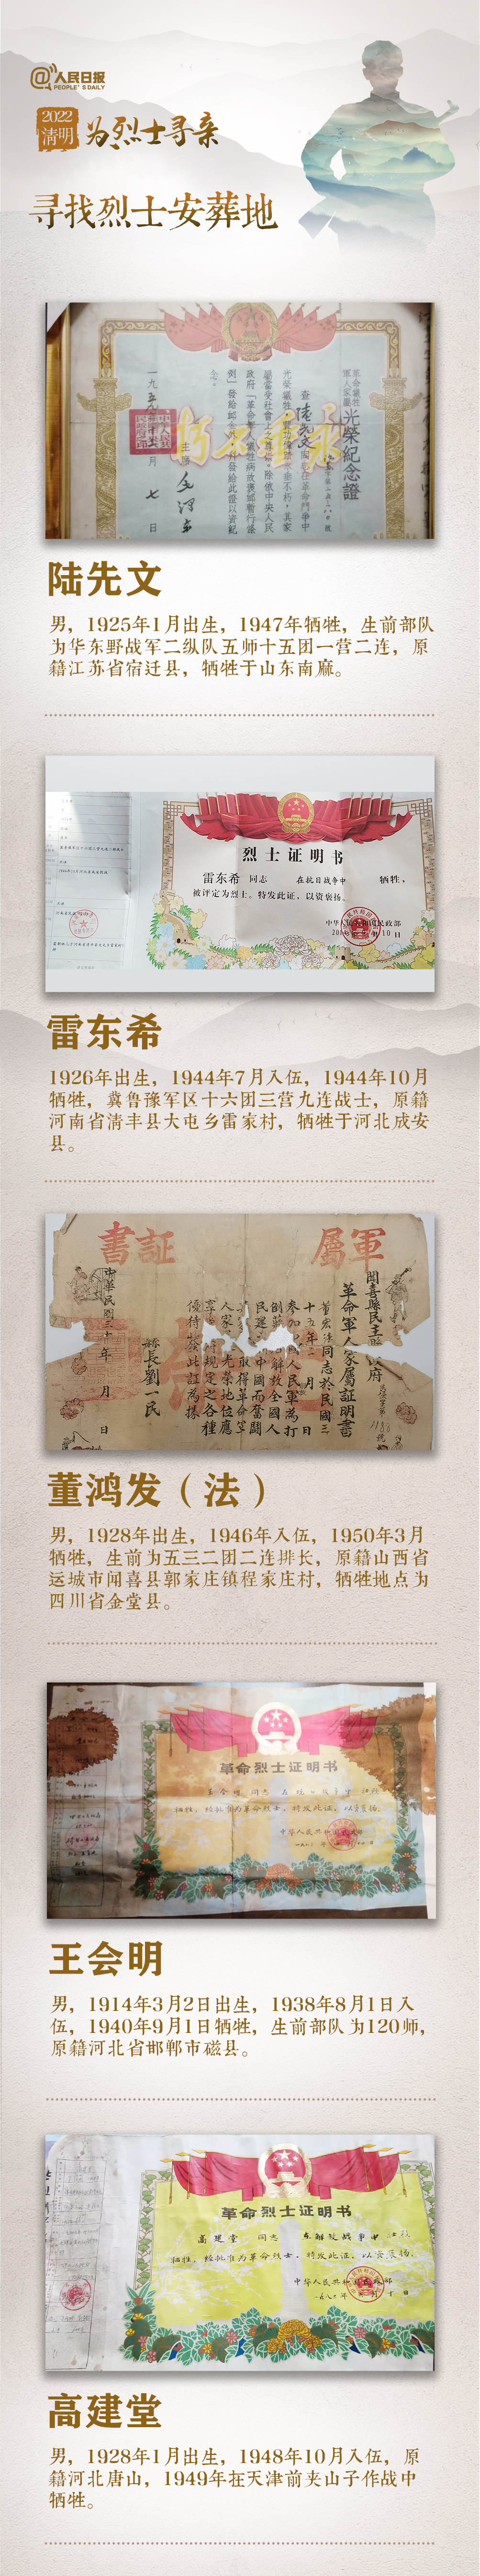 人民日报
PEOPLE'S DAILY
2022
清明
为烈士寻亲
寻找烈士安葬地
革命牺牲
軍人家屬
光榮紀念證
永垂不朽
主席
陆先文
男，1925年1月出生，1947年牺牲，生前部队
为华东野战军二纵队五师十五团一营二连，原
籍江苏省宿迁县，牺牲于山东南麻。
烈士证明书
雷东希 同志 在抗日战争中 牺牲、
被评定为烈士。特发此证，以资褒扬。
雷东希
1926年出生，1944年7月入伍，1944年10月
牺牲，冀鲁豫军区十六团三营九连战士，原籍
河南省清丰县大屯乡雷家村，牺牲于河北成安
县。
軍屬
証書
革命軍人家屬証明書
縣長劉一民
董鸿发（法）
男，1928年出生，1946年入伍，1950年3月
牺牲，生前为五三二团二连排长，原籍山西省
运城市闻喜县郭家庄镇程家庄村，牺牲地点为
四川省金堂县。
革命烈士证明书
牺牲，经批准为革命烈士。特发此证，以资褒扬。
王会明
男，1914年3月2日出生，1938年8月1日入
伍，1940年9月1日牺牲，生前部队为120师，
原籍河北省邯郸市磁县。
革命烈士证明书
高建堂 同志 在解放战争中
牺牲，经批准为革命烈士。特发此证，以资褒扬。
高建堂
男，1928年1月出生，1948年10月入伍，原
籍河北唐山，1949年在天津前夹山子作战中
牺牲。